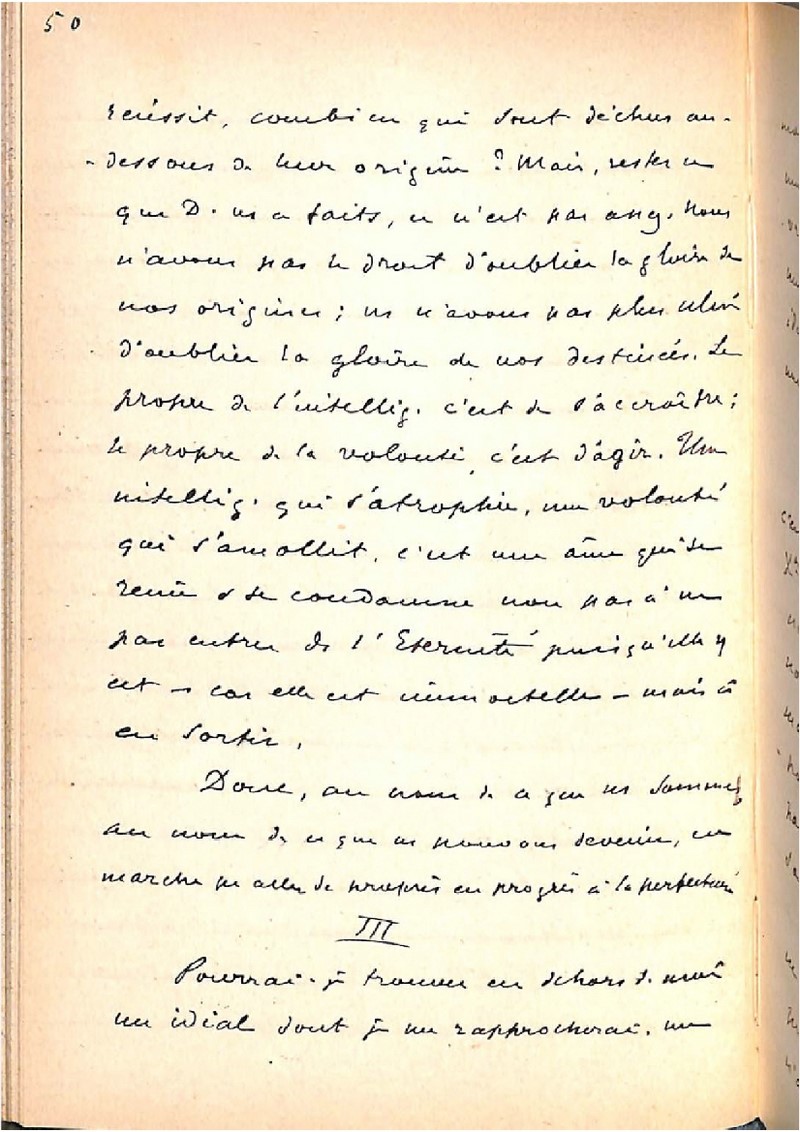 50
réussit, combien qui sont déchus au-
-dessous de leur origine ? Mais, rester ce
que D. ns a faits, ce n'est pas assez. Nous
n'avons pas le droit d'oublier la gloire de
nos origines ; ns n'avons pas plus celui
d'oublier la gloire de nos destinées. Le
propre de l'intellig. c'est de s'accroître ;
le propre de la volonté, c'est d'agir. Une
intellig. qui s'atrophie, une volonté
qui s'amollit, c'est une âme qui se
renie & se condamne non pas à ne
pas entrer ds l'Eternité puisqu'elle y
est – car elle est immortelle – mais à
en sortir.
Donc, au nom de ce que ns sommes
au nom de ce que ns pouvons devenir, en
marche pr aller de progrès en progrès à la perfection
III
Pourrai-je trouver en dehors de moi
un idéal dont je me rapprocherai, un